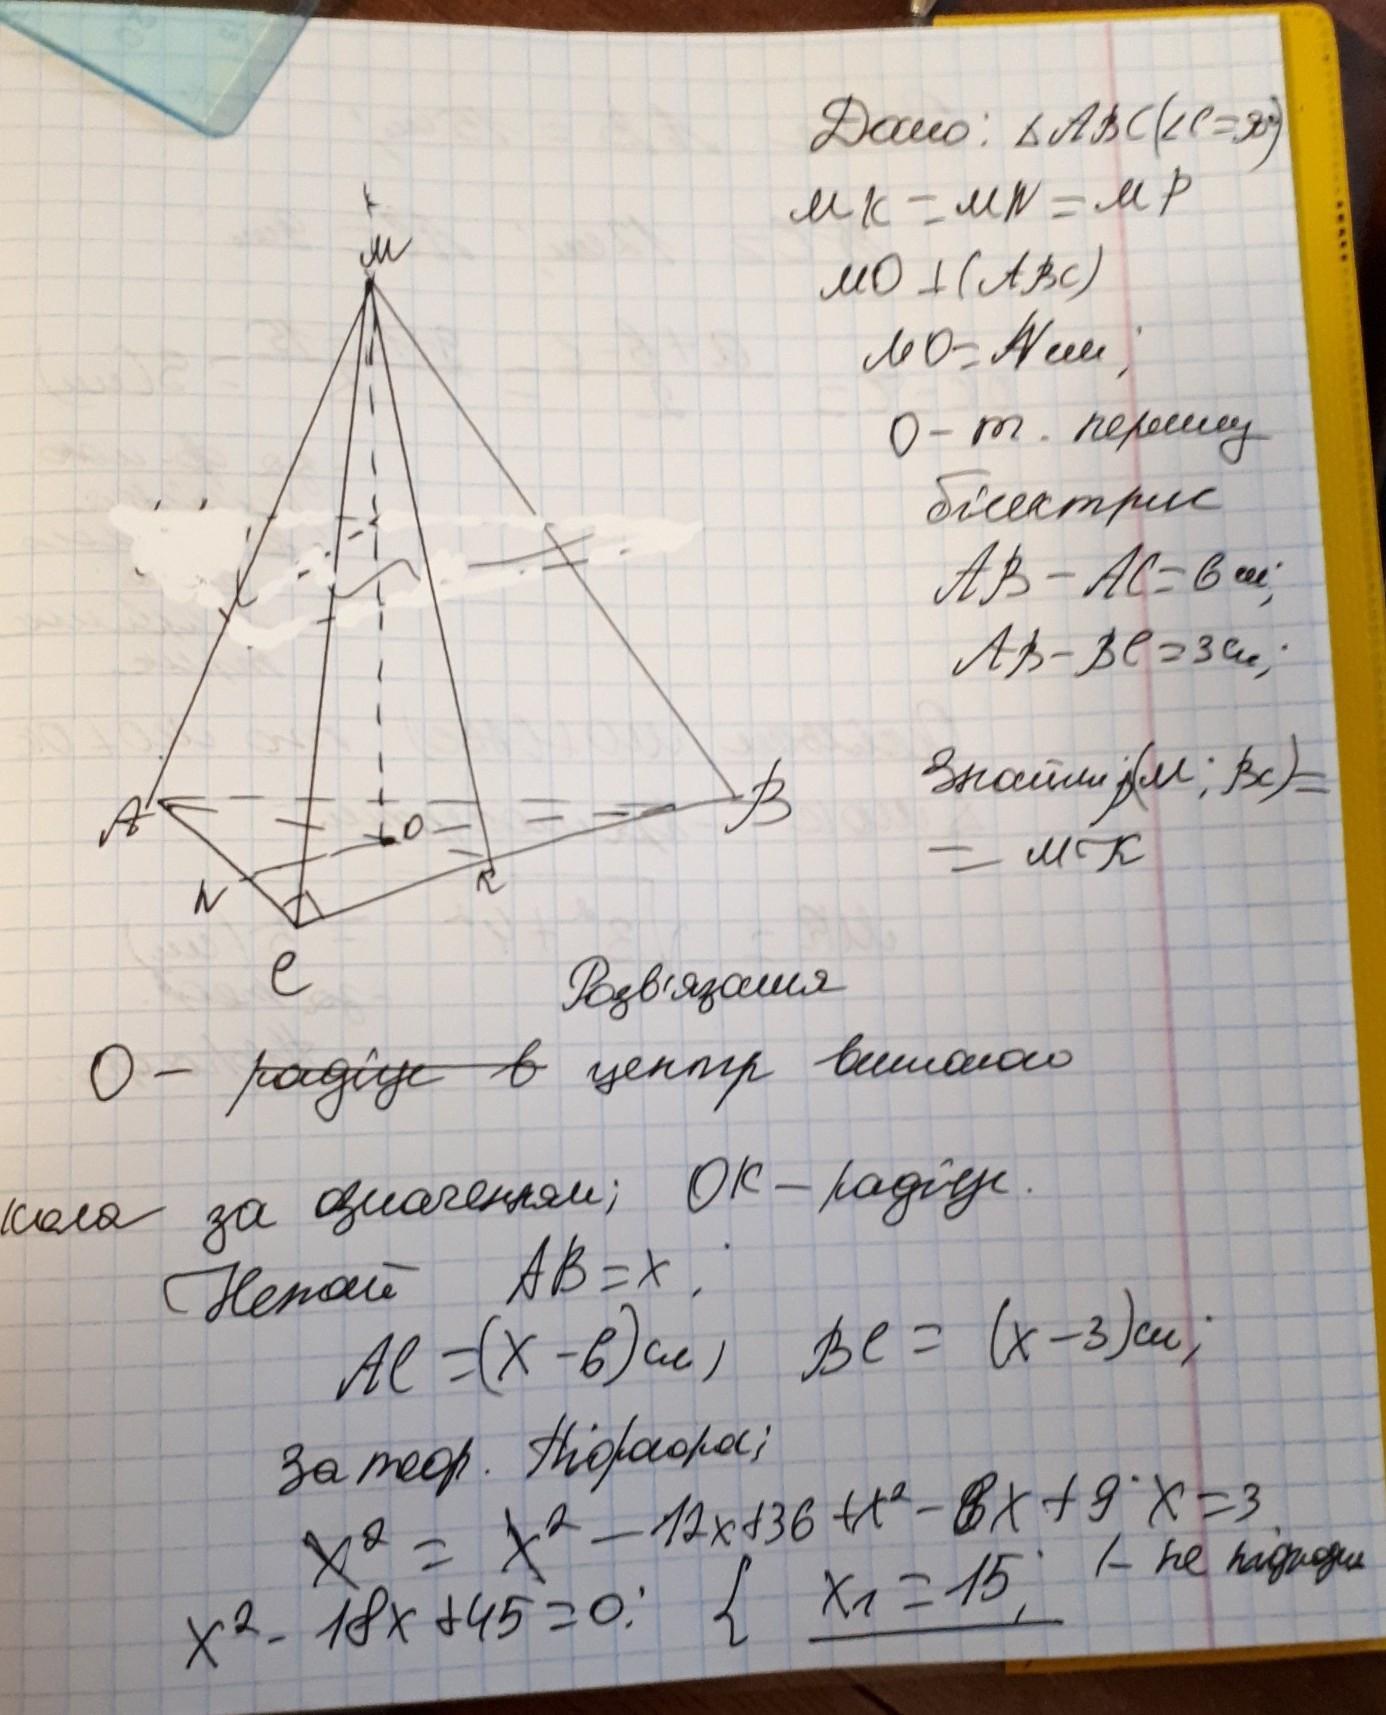 Дано: △ABC(∠C=90°)
MK = MN = MP
MO ⊥ (ABC)
MO = см;
O - т. перетину
бісектрис
AB - AC = 6 см;
AB - BC = 3 см;
Знайти: ρ(M; BC) =
= MK
M
A
B
O
N
K
C
Розв'язання
O - радіус в центр вписаного
кола за означенням; OK - радіус.
Нехай AB = x;
AC = (x - 6) см, BC = (x - 3) см;
За теор. Піфагора;
x² = x² - 12x + 36 + x² - 6x + 9 x = 3
x² - 18x + 45 = 0; { x₁ = 15; - не підходить